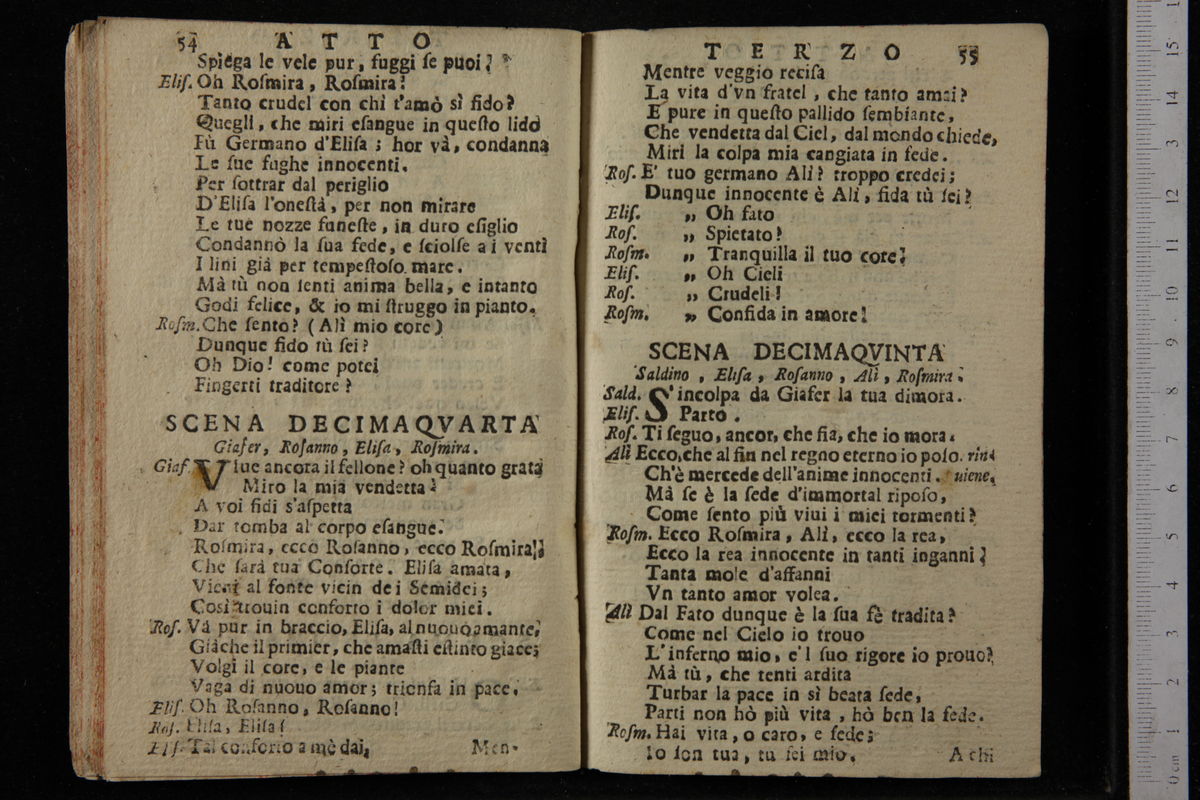 54 ATTO
Spiega le vele pur, fuggi ſe puoi?
Eliſ. Oh Roſmira, Roſmira!
Tanto crudel con chi t'amò sì fido?
Quegli, che miri eſangue in queſto lido
Fù Germano d'Eliſa; hor và, condanna
Le ſue fughe innocenti.
Per ſottrar dal periglio
D'Eliſa l'oneſtà, per non mirare
Le tue nozze funeſte, in duro eſiglio
Condannò la ſua fede, e ſciolſe a i venti
I lini già per tempeſtoſo mare.
Mà tù non ſenti anima bella, e intanto
Godi felice, & io mi ſtruggo in pianto.
Roſm. Che ſento? (Alì mio core)
Dunque fido tù ſei?
Oh Dio! come potei
Fingerti traditore?
SCENA DECIMAQVARTA
Giafer, Roſanno, Eliſa, Roſmira.
Giaf. Viue ancora il fellone? oh quanto grata
Miro la mia vendetta!
A voi fidi s'aſpetta
Dar tomba al corpo eſangue.
Roſmira, ecco Roſanno, ecco Roſmira
Che ſarà tua Conſorte. Eliſa amata,
Vieni al fonte vicin de i Semidei;
Così trouin conforto i dolor miei.
Roſ. Và pur in braccio, Eliſa, al nuouo amante,
Giàche il primier, che amaſti eſtinto giace;
Volgi il core, e le piante
Vaga di nuouo amor; trionfa in pace.
Eliſ. Oh Roſanno, Roſanno!
Roſ. Eliſa, Eliſa!
Eliſ. Tal conforto a mè dai,
Men-
TERZO 55
Mentre veggio reciſa
La vita d'vn fratel, che tanto amai?
E pure in queſto pallido ſembiante,
Che vendetta dal Ciel, dal mondo chiede,
Miri la colpa mia cangiata in fede.
Roſ. E' tuo germano Alì? troppo credei;
Dunque innocente è Alì, fida tù ſei?
Eliſ. „ Oh fato
Roſ. „ Spietato?
Roſm. „ Tranquilla il tuo core!
Eliſ. „ Oh Cieli
Roſ. „ Crudeli!
Roſm. „ Confida in amore!
SCENA DECIMAQVINTA
Saldino, Eliſa, Roſanno, Alì, Roſmira.
Sald. S'incolpa da Giafer la tua dimora.
Eliſ. Parto.
Roſ. Ti ſeguo, ancor, che fia, che io mora.
Alì Ecco, che al fin nel regno eterno io poſo. rin-
Ch'è mercede dell'anime innocenti. uiene.
Mà ſe è la ſede d'immortal ripoſo,
Come ſento più viui i miei tormenti?
Roſm. Ecco Roſmira, Alì, ecco la rea,
Ecco la rea innocente in tanti inganni;
Tanta mole d'affanni
Vn tanto amor volea.
Alì Dal Fato dunque è la ſua fè tradita?
Come nel Cielo io trouo
L'inferno mio, e'l ſuo rigore io prouo?
Mà tù, che tenti ardita
Turbar la pace in sì beata ſede,
Parti non hò più vita, hò ben la fede.
Roſm. Hai vita, o caro, e fede;
Io ſon tua, tu ſei mio.
A chi
15
14
13
12
11
10
9
8
7
6
5
4
3
2
1
0 cm